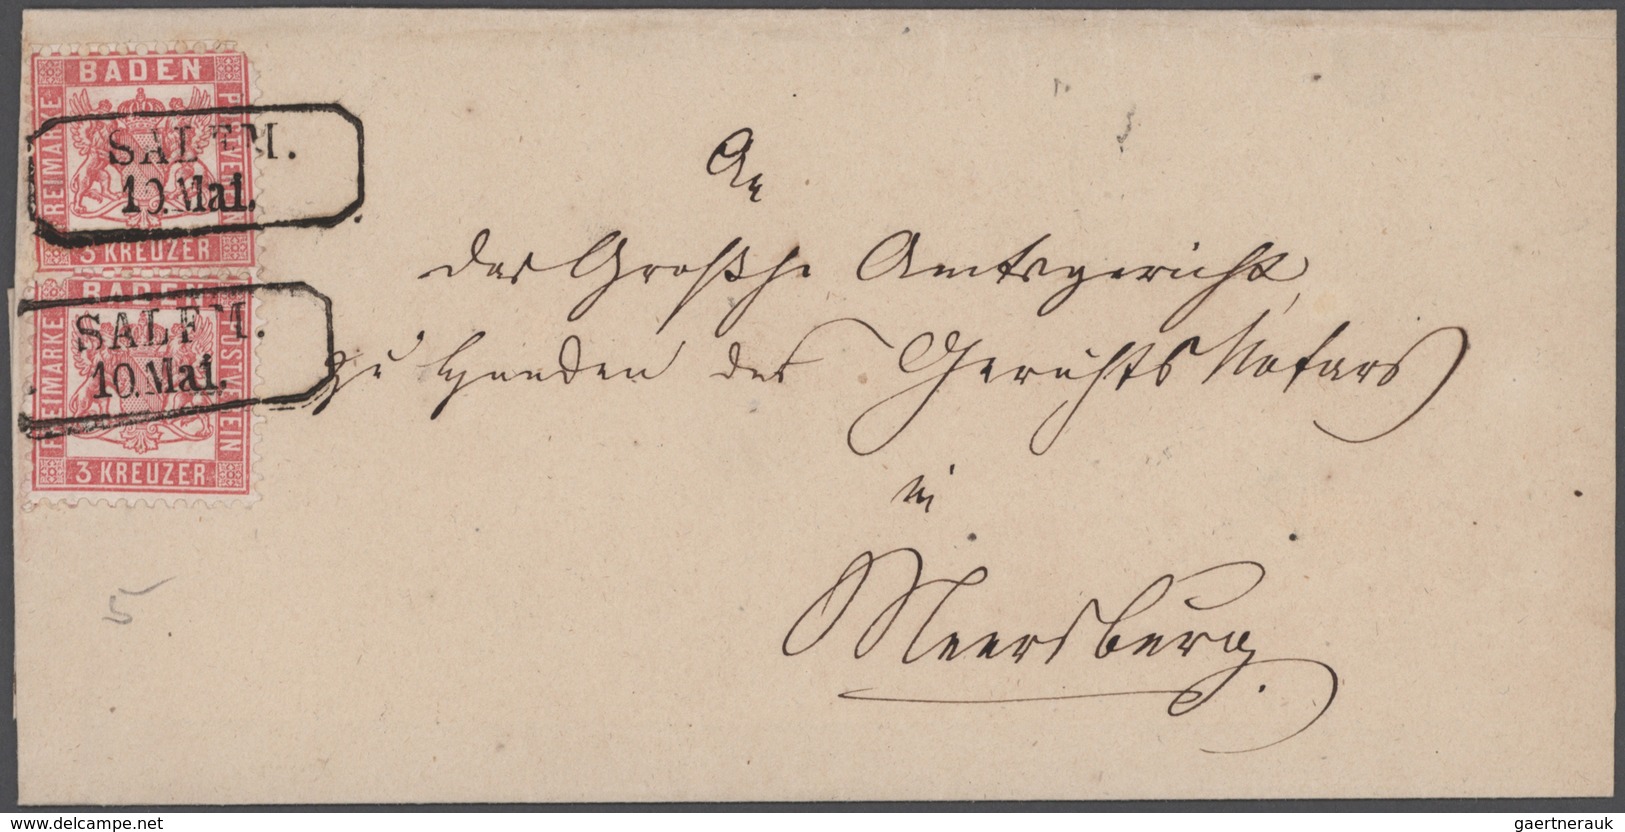 BADEN
FREIMARKE
POSTVEREIN
3 KREUZER
SALEM.
10.Mai.
BADEN
FREIMARKE
POSTVEREIN
3 KREUZER
SALEM.
10.Mai.
An
das Großhe Amtsgericht
zu Handen des Gerichts Notars
in
Meersburg.
5
delcampe.net
gaertnerauk